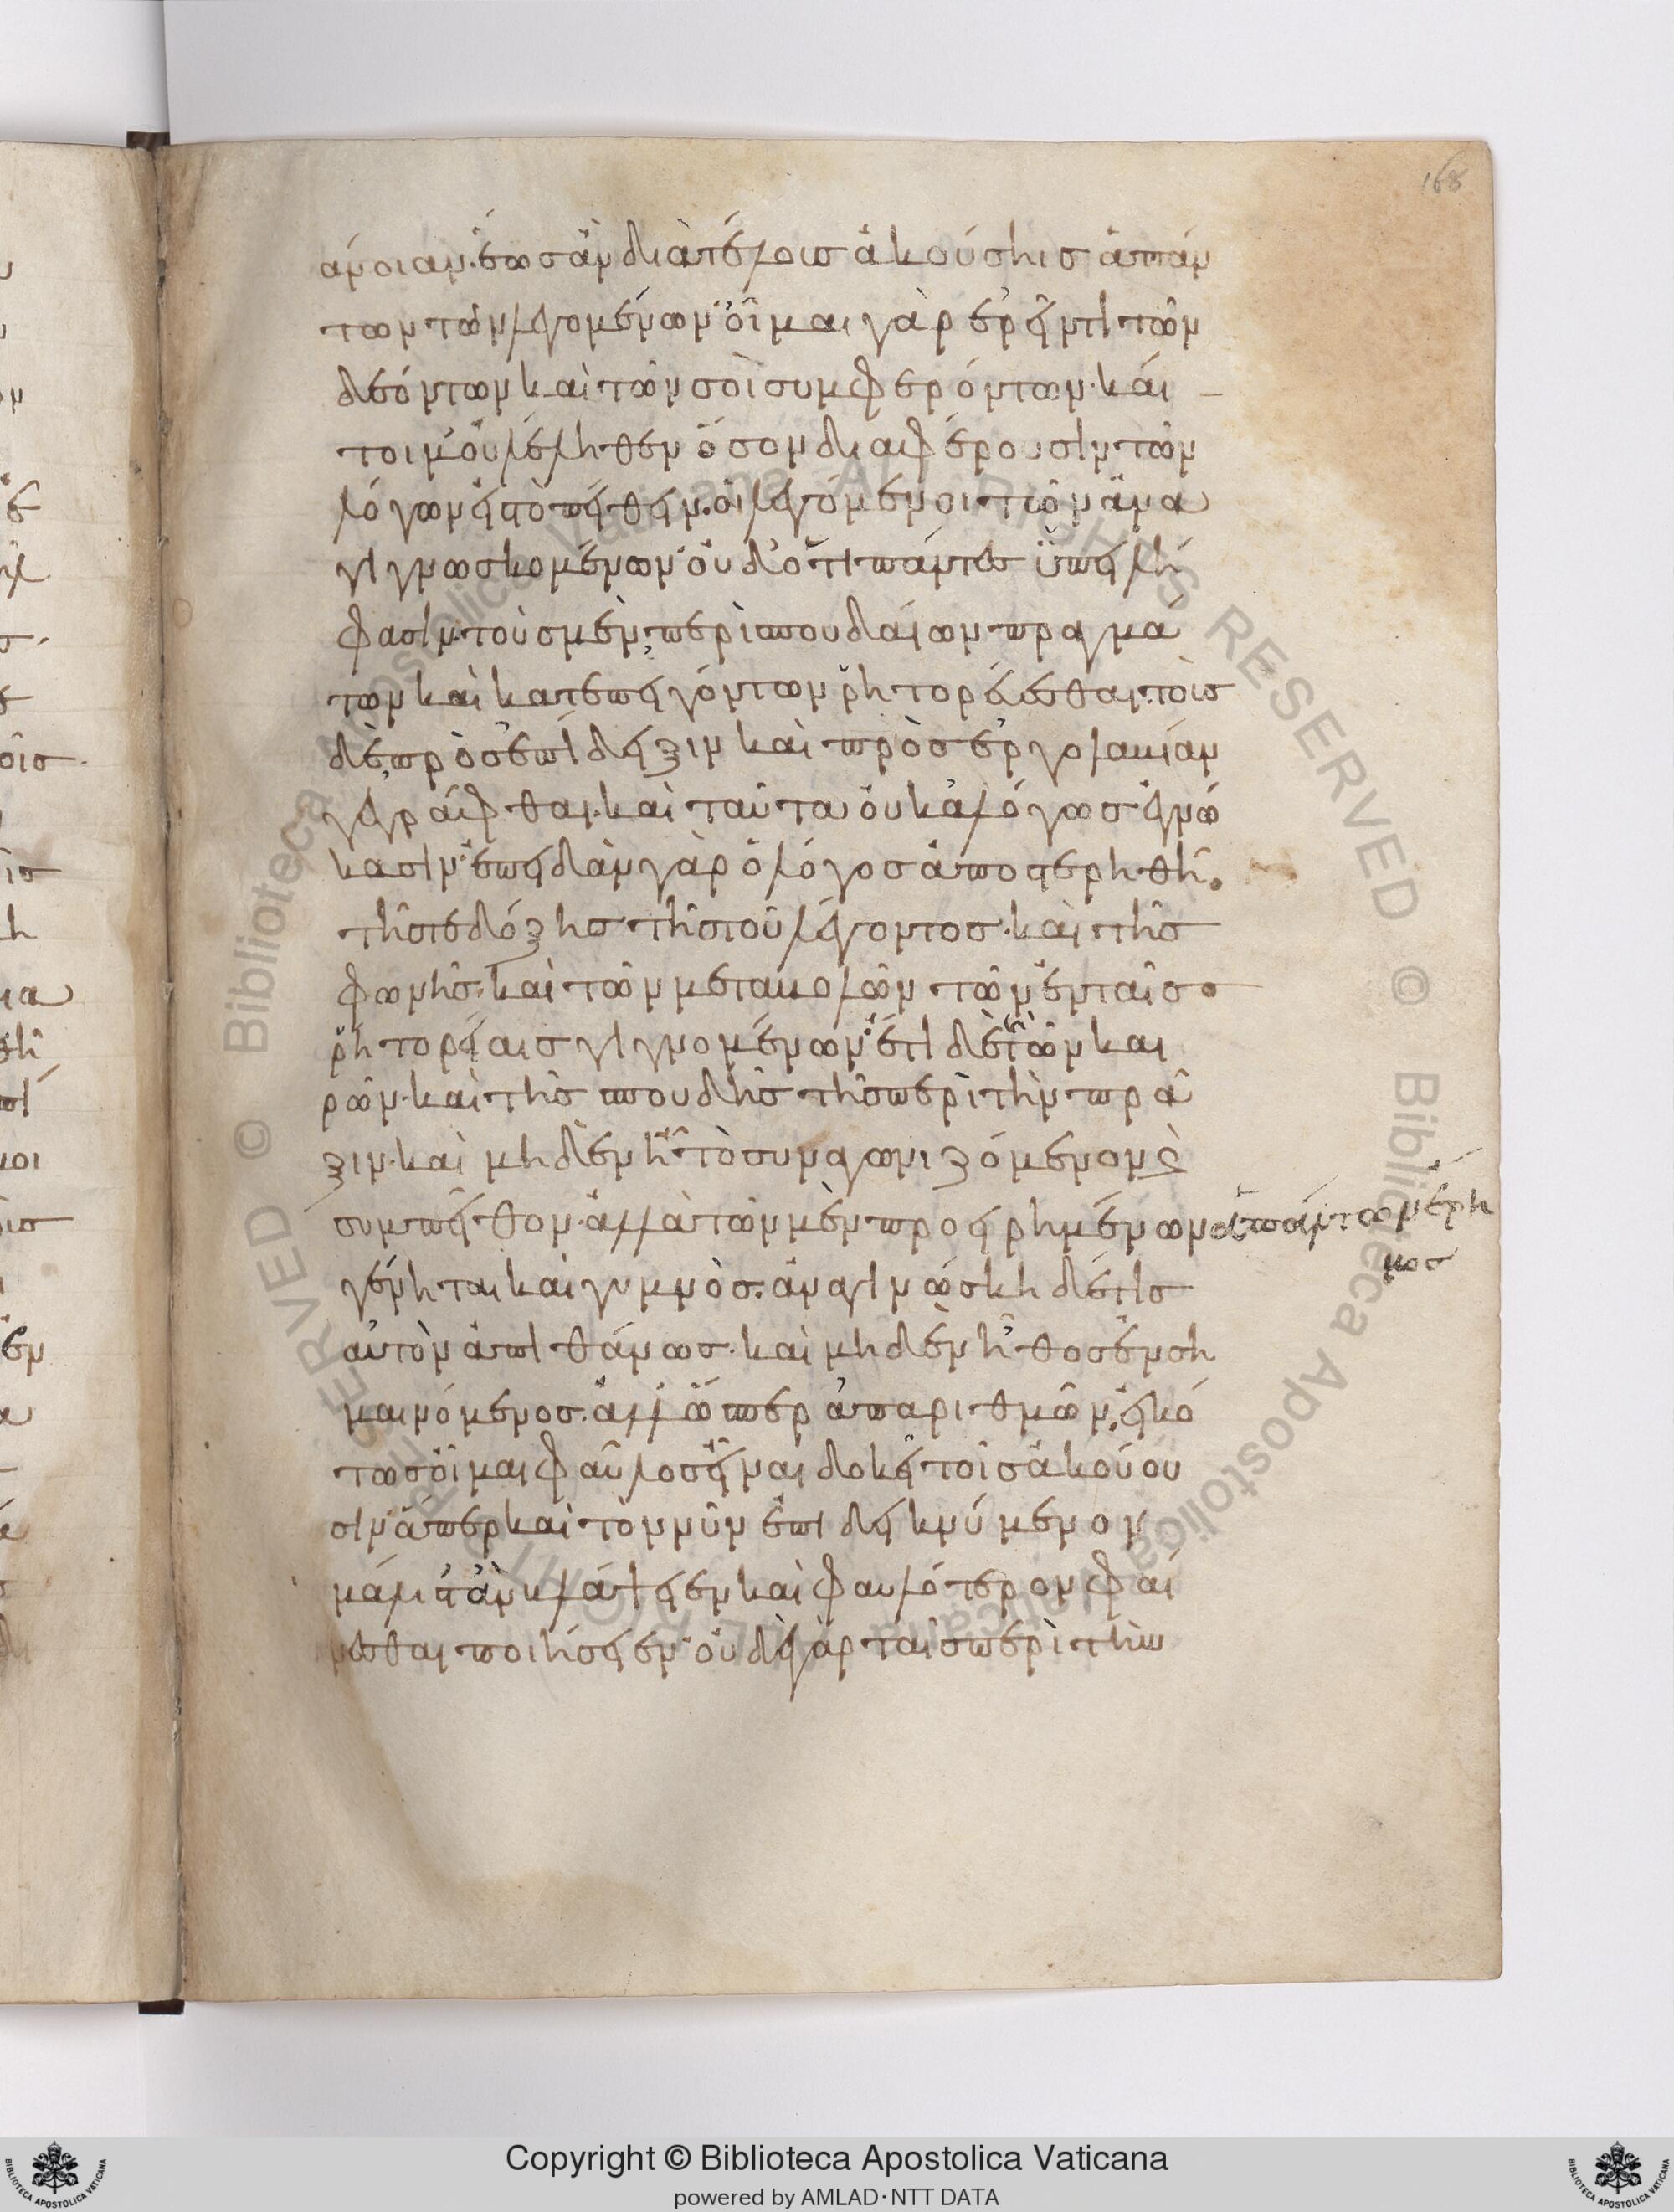 168
άνοιαν· ἕως ἂν διὰ τέλους ἀκούσηις ἁπάν
των τῶν λεγομένων· οἶμαι γὰρ ἐρεῖν τι τῶν
δεόντων καὶ τῶν σοὶ συμφερόντων· καί
τοι μ' οὐ λέληθεν ὅσον διαφέρουσιν τῶν
λόγων εἰς τὸ πείθειν· οἱ λεγόμενοι τῶν ἀνα
γιγνωσκομένων· οὐδ' ὅτι πάντες ὑπειλή
φασιν· τοὺς μὲν, περὶ σπουδαίων πραγμά
των καὶ κατεπειγόντων ῥητορεύεσθαι· τοὺς
δὲ, πρὸς ἐπίδειξιν καὶ πρὸς ἐργολαβίαν
γεγράφθαι· καὶ ταῦτα οὐκ ἀλόγως ἐγνώ
κασιν· ἐπειδὰν γὰρ ὁ λόγος ἀποστερηθῆ
τῆς τε δόξης τῆς τοῦ λέγοντος· καὶ τῆς
φωνῆς· καὶ τῶν μεταβολῶν τῶν ἐν ταῖς
ῥητορείαις γιγνομένων· ἔτι δὲ τῶν και
ρῶν· καὶ τῆς σπουδῆς τῆς περὶ τὴν πρᾶ
ξιν· καὶ μηδὲν ἦ τὸ συναγωνιζόμενον
συμπεῖθον· ἀλλὰ τῶν μὲν προειρημένων ἁπάντων ἔρη
μος
γένηται καὶ γυμνὸς· ἀναγινώσκη δέ τις
αὐτὸν ἀπιθάνως· καὶ μηδὲν ἦθος ἐνση
μαινόμενος· ἀλλ' ὥσπερ ἀπαριθμῶν· εἰκό
τως οἶμαι φαῦλος εἶναι δοκεῖ τοῖς ἀκούου
σιν· ἅπερ καὶ τὸν νῦν ἐπιδεικνύμενον
μάλιστ' ἂν βλάψειεν καὶ φαυλότερον φαί
νεσθαι ποιήσειεν· οὐδὲ γὰρ ταῖς περὶ τὴν
Copyright © Biblioteca Apostolica Vaticana
powered by AMLAD·NTT DATA